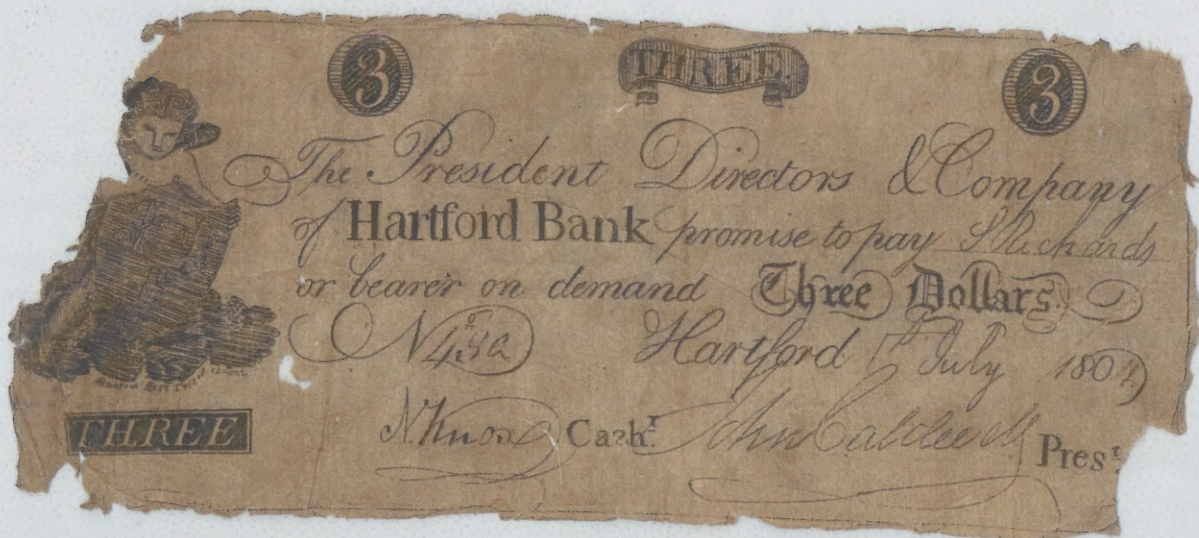 3 THREE. 3
The President Directors & Company
of Hartford Bank promise to pay S Richards
or bearer on demand Three Dollars.
No 432 Hartford 1st July 180
THREE
N. Knox Cash.r John Caldwell Pres.t